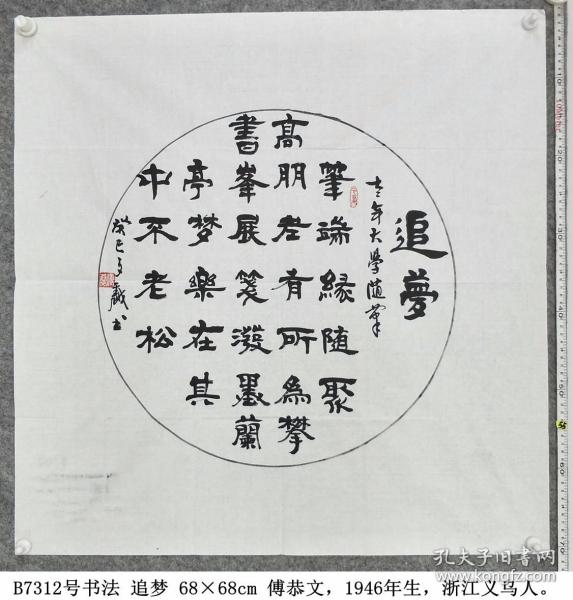 追夢
老年大學随筆
筆端緣随聚
高朋老有所為攀
書峯展箋潑墨蘭
亭梦樂在其
中不老松
癸巳戲书
孔夫子旧书网
B7312号书法 追梦 68×68cm 傅恭文，1946年生，浙江义乌人。